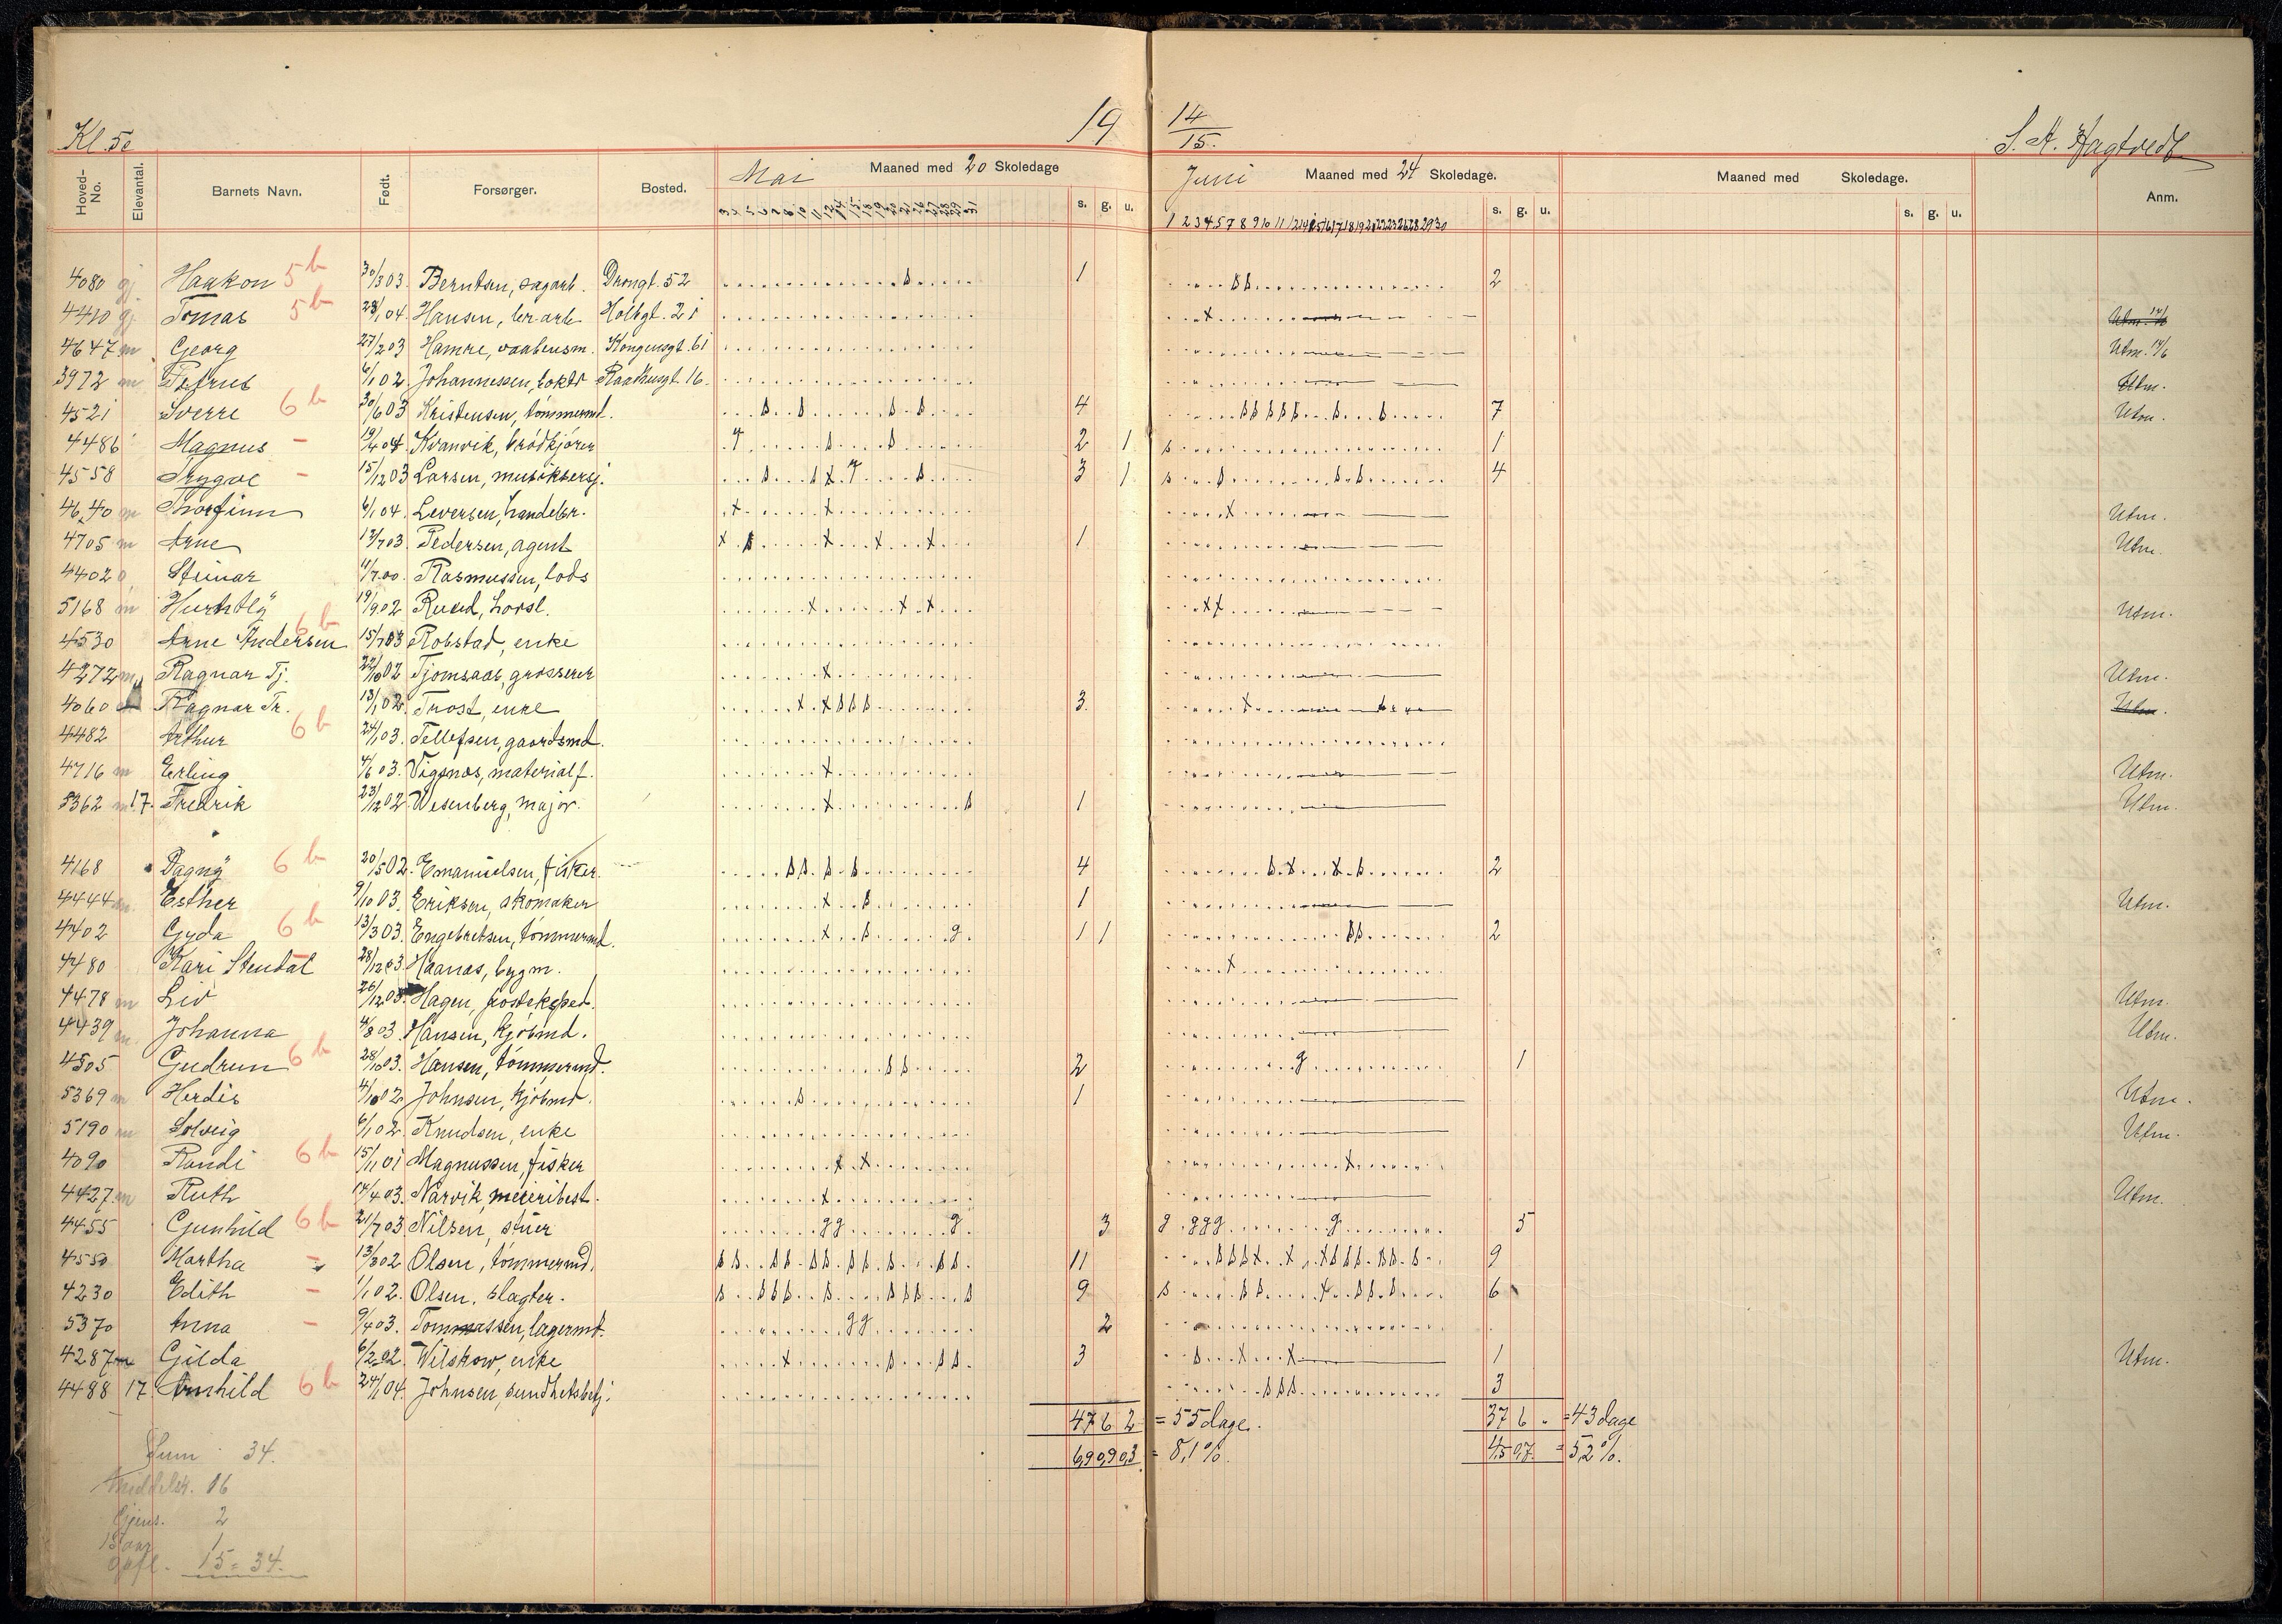 Kl. 5c 19 14/15. S. A. Hagtvedt
Hoved-No. Elevantal. Barnets Navn. Født. Forsørger. Bosted. Mai Maaned med 20 Skoledage s. g. u. Juni Maaned med 24 Skoledage. s. g. u. Maaned med Skoledage. s. g. u. Anm.
4080 gj. Haakon 5b 30/3 03. Berntsen, sagarb. Drongt. 52 1 2
4410 gj. Tomas 5b 04. Hansen, Holbgt. 21 Utm.
4647 m Georg 27/2 03 Hamre, vaabensm. Kongensgt. 61 Utm. 14/6
3972 m Petrus 6/1 02. Johannessen, Raadhusgt. 16. Utm.
4521 Sverre 6b 30/6 03 Kristensen, tømmermd. 4 7 Utm.
4486 Magnus - 04. Kvanvik, brødkjører 2 1 1
4558 Trygve - 15/12 03 Larsen, musikbersj. 3 1 4
4640 m Thorfinn 6/1 04. Leversen, handelsr. Utm.
4705 m Arne 03. Pedersen, agent 1 Utm.
4402 0 Steinar 11/7 00. Rasmussen, lods
5168 m 19/9 02 Ruud, Utm.
4530 Arne Andersen 6b 15/7 03 Robstad, enke
4272 m. Ragnar Tj. 02 Tjomsaas, grosserer Utm.
4060 Ragnar Tr. 13/1 02. Trost, enke 3. Utm.
4482 Arthur 6b 24/1 03. Tellefsen, gaardsmd.
4716 m Erling 4/6 03. Vigsnæs, materialf. Utm.
5362 m 17. Fredrik 23/12 02. Wesenberg, major. 1 Utm.
4168 Dagny 6b 20/5 02. Emanuelsen, fisker. 4 2
4444 m. Esther 9/10 03. Eriksen, skomaker 1 Utm.
4402 Gyda 6b 13/3 03. Engebretsen, tømmermd. 1 1 2
4480 Kari Stendal - 28/12 03. Haanæs, bygm.
4478 m Liv 26/12 03. Hagen, posteksped. Utm.
4439 m. Johanna 4/8 03 Hansen, kjøbmd. Utm.
4505 Gudrun 6b 28/10 03. Hansen, tømmermd. 2 1
5369 m Herdis 4/10 02 Johnsen, kjøbmd. 1 Utm.
5190 m Solveig 6/1 02. Knudsen, enke Utm.
4090 Randi 6b 15/11 01 Magnussen, fisker
4427 m Ruth 14/4 03. Narvik, meieribest. Utm.
4455 Gunhild 6b 21/7 03 Nilsen, stuer 3 5
4550 Martha - 13/3 02 Olsen, tømmermd. 11 9
4230 Edith - 1/1 02. Olsen, slagter. 9 6
5370 Anna - 9/4 03. Tommassen, lagermd. 2
4287 m Gilda 6/2 02. Wilskow, enke 3 1 Utm.
4488 17 Arnhild 6b 24/1 04. Johnsen, sundhetsbetj. 3
47 6 2 = 55 dage. 37 6 . = 43 dage
6,9 0,9 0,3 = 8,1%. 4,5 0,7. = 5,2%.
Sum 34.
Middelsk. 16
Gjens. 2
15 aar 1
Opfl. 15 = 34.